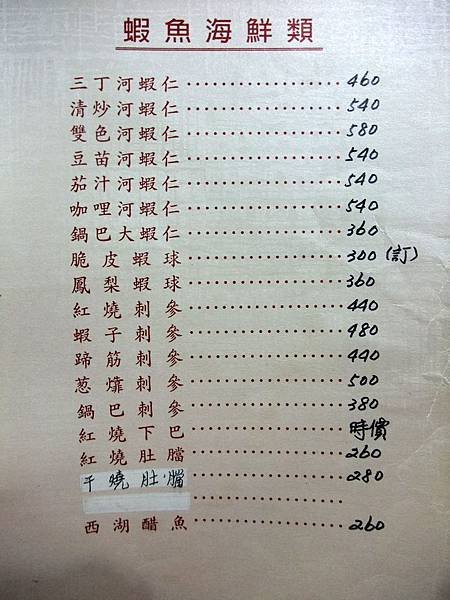 蝦魚海鮮類
三丁河蝦仁····················460
清炒河蝦仁····················540
雙色河蝦仁····················580
豆苗河蝦仁····················540
茄汁河蝦仁····················540
咖哩河蝦仁····················540
鍋巴大蝦仁····················360
脆皮蝦球····················300(訂)
鳳梨蝦球····················360
紅燒刺參····················440
蝦子刺參····················480
蹄筋刺參····················440
葱㸆刺參····················500
鍋巴刺參····················380
紅燒下巴····················時價
紅燒肚膛····················260
干燒肚膛····················280
····················
西湖醋魚····················260